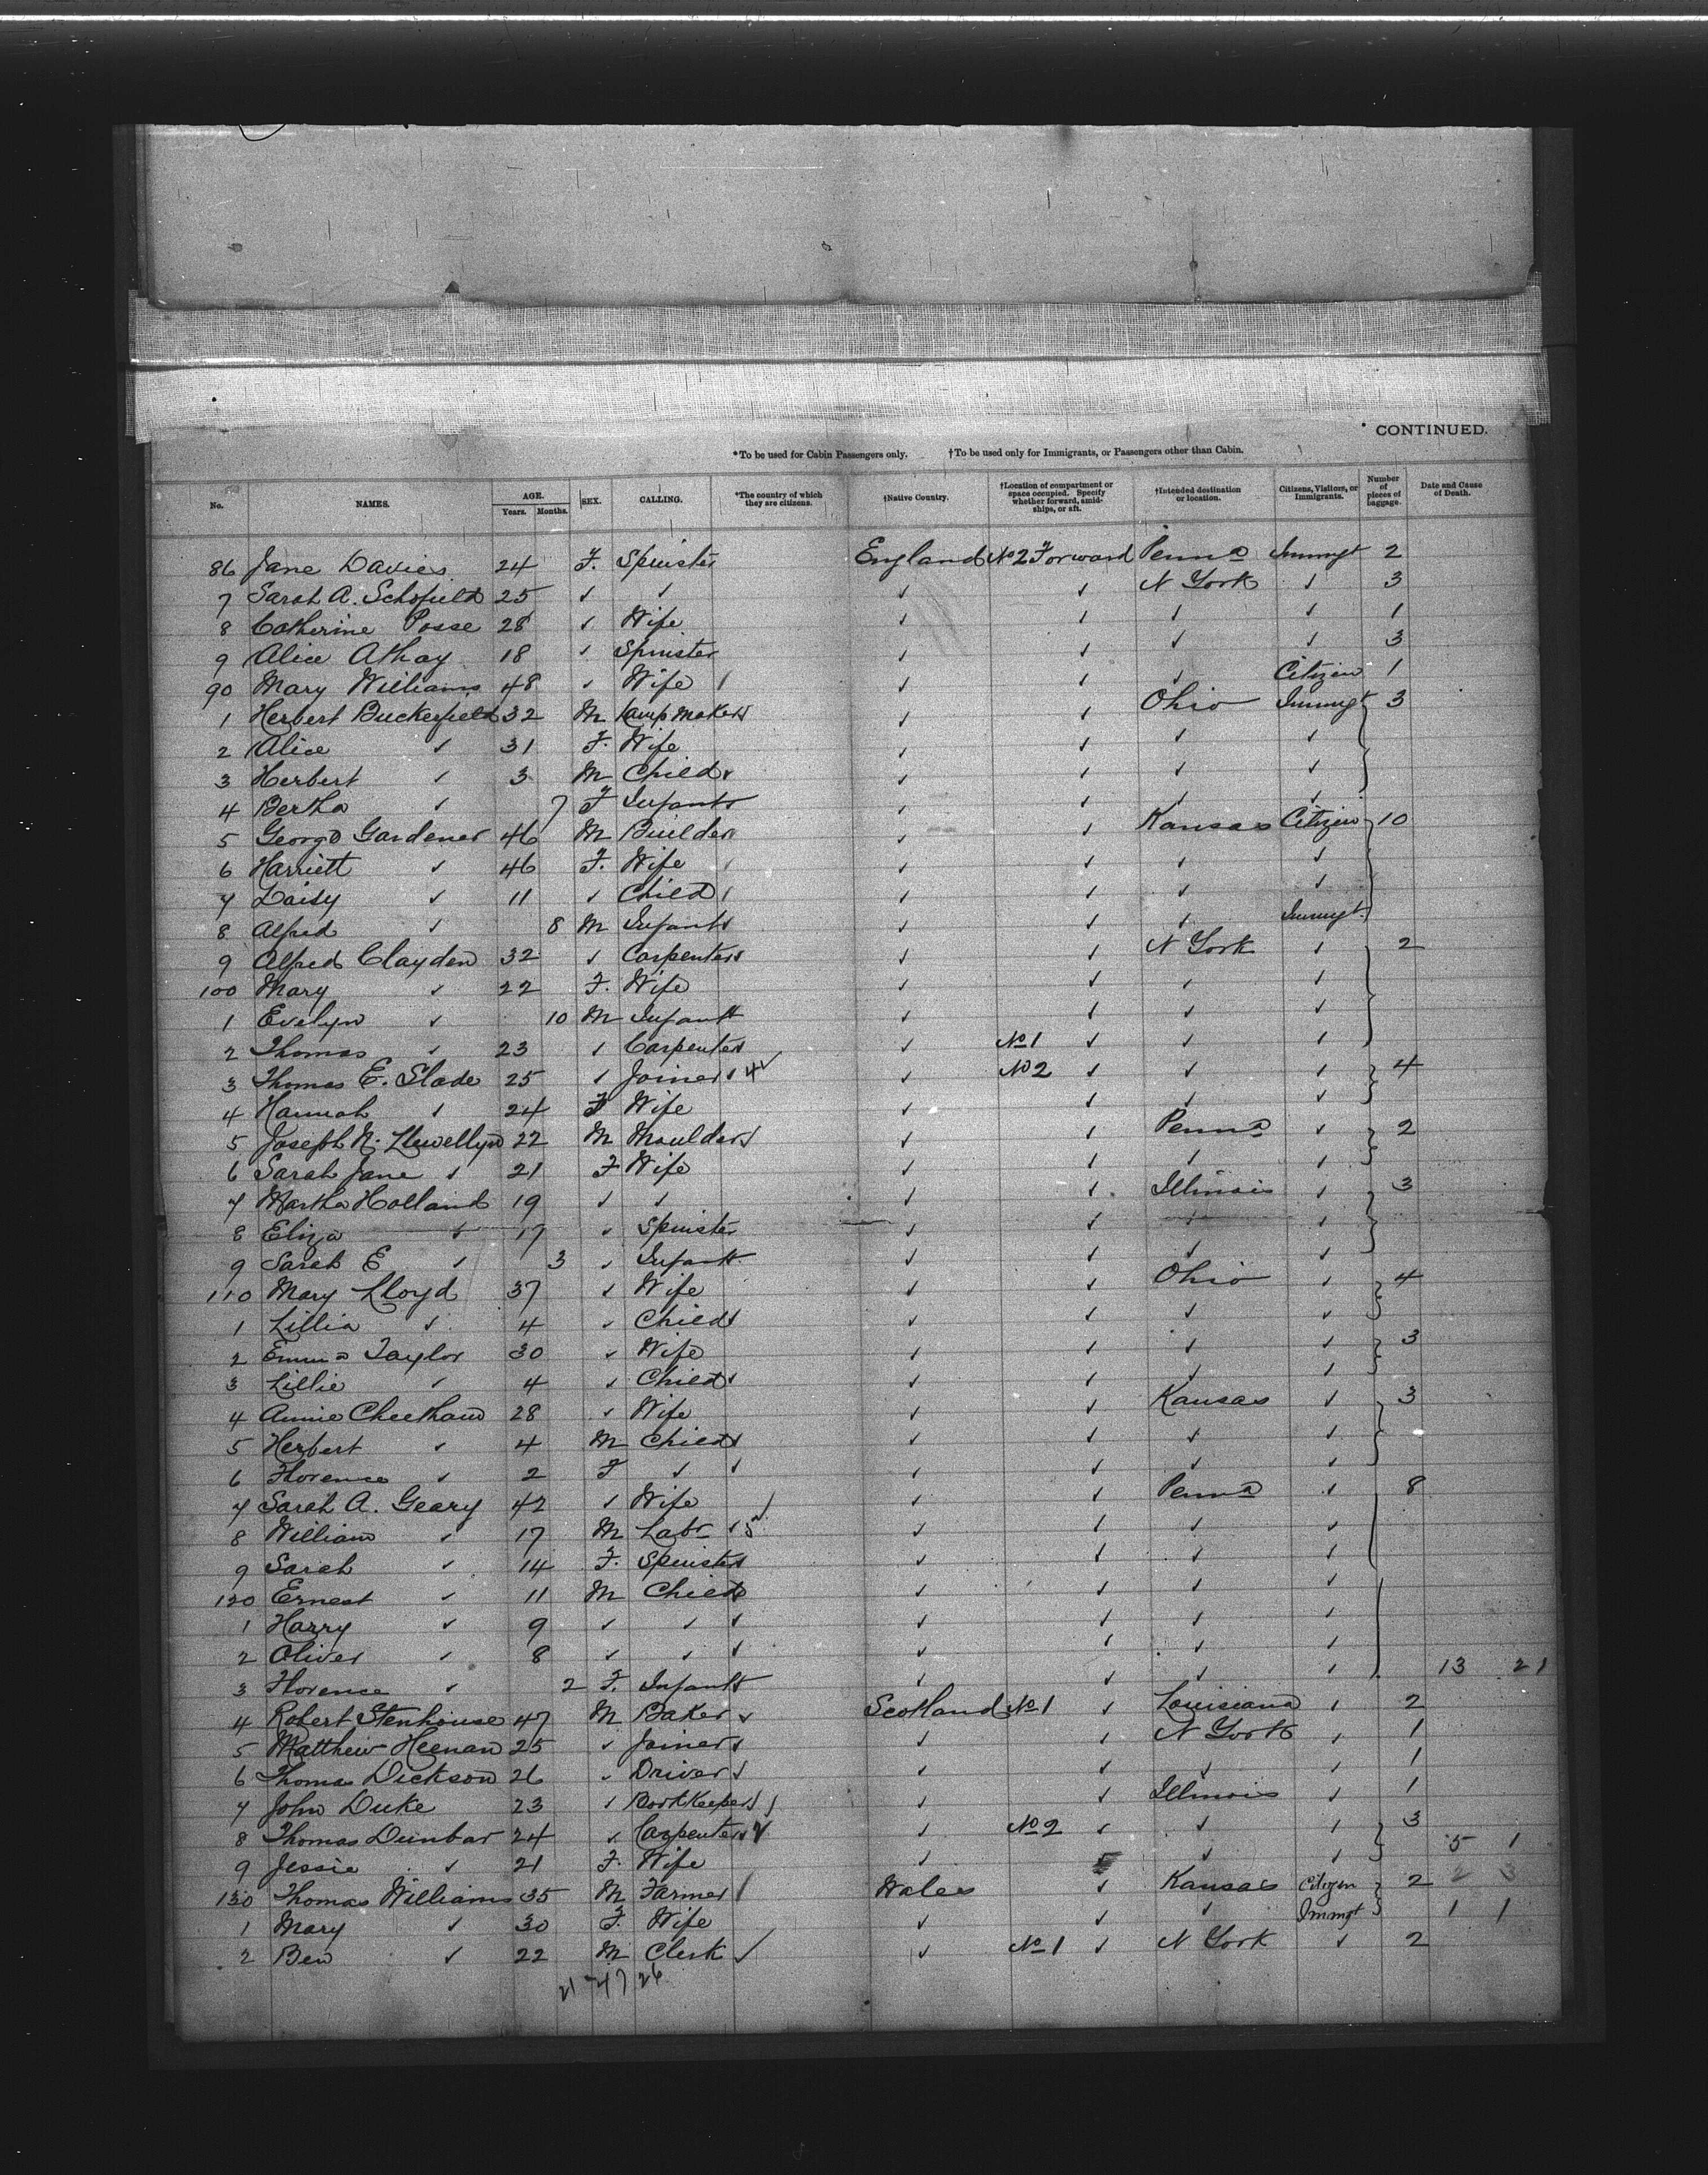 CONTINUED.
*To be used for Cabin Passengers only. †To be used only for Immigrants, or Passengers other than Cabin.
No. NAMES. AGE. Years. Months. SEX. CALLING. *The country of which they are citizens. †Native Country. †Location of compartment or space occupied. Specify whether forward, amidships, or aft. †Intended destination or location. Citizens, Visitors, or Immigrants. Number of pieces of baggage. Date and Cause of Death.
86 Jane Davies 24 F. Spinster England No 2 Forward Penna Immgt 2
7 Sarah A. Schofield 25 ✓ ✓ ✓ ✓ N York ✓ 3
8 Catherine Posse 28 ✓ Wife ✓ ✓ ✓ ✓ 1
9 Alice Athay 18 ✓ Spinster ✓ ✓ ✓ ✓ 3
90 Mary Williams 48 ✓ Wife ✓ ✓ ✓ Citizen 1
1 Herbert Buckerfield 32 M Lampmaker ✓ ✓ Ohio Immgt 3
2 Alice ✓ 31 F. Wife ✓ ✓ ✓ ✓
3 Herbert ✓ 3 M Child ✓ ✓ ✓ ✓ ✓
4 Bertha ✓ 7 F Infant ✓ ✓ ✓ ✓
5 George Gardener 46 M Builder ✓ ✓ Kansas Citizen 10
6 Harriett ✓ 46 F. Wife ✓ ✓ ✓ ✓
7 Daisy ✓ 11 ✓ Child ✓ ✓ ✓ ✓
8 Alfred ✓ 8 M Infant ✓ ✓ ✓ Immgt
9 Alfred Clayden 32 ✓ Carpenter ✓ ✓ N York ✓ 2
100 Mary ✓ 22 F. Wife ✓ ✓ ✓ ✓
1 Evelyn ✓ 10 M Infant ✓ ✓ ✓ ✓
2 Thomas ✓ 23 ✓ Carpenter ✓ No 1 ✓ ✓ ✓
3 Thomas E. Slade 25 ✓ Joiner ✓ ✓ No 2 ✓ ✓ ✓ 4
4 Hannah ✓ 24 F Wife ✓ ✓ ✓ ✓
5 Joseph N. Llewellyn 22 M Moulder ✓ ✓ ✓ Penna ✓ 2
6 Sarah Jane ✓ 21 F Wife ✓ ✓ ✓ ✓
7 Martha Holland 19 ✓ ✓ ✓ ✓ Illinois ✓ 3
8 Eliza ✓ 17 ✓ Spinster ✓ ✓ ✓ ✓
9 Sarah E ✓ 3 ✓ Infant ✓ ✓ ✓ ✓
110 Mary Lloyd 37 ✓ Wife ✓ ✓ Ohio ✓ 4
1 Lillia ✓ 4 ✓ Child ✓ ✓ ✓ ✓ ✓
2 Emma Taylor 30 ✓ Wife ✓ ✓ ✓ ✓ 3
3 Lillie ✓ 4 ✓ Child ✓ ✓ ✓ ✓ ✓
4 Annie Cheetham 28 ✓ Wife ✓ ✓ Kansas ✓ 3
5 Herbert ✓ 4 M Child ✓ ✓ ✓ ✓ ✓
6 Florence ✓ 2 F ✓ ✓ ✓ ✓ ✓ ✓
7 Sarah A. Geary 42 ✓ Wife ✓ ✓ Penna ✓ 8
8 William ✓ 17 M Labr ✓ ✓ ✓ ✓ ✓
9 Sarah ✓ 14 F. Spinster ✓ ✓ ✓ ✓
120 Ernest ✓ 11 M Child ✓ ✓ ✓ ✓
1 Harry ✓ 9 ✓ ✓ ✓ ✓ ✓ ✓ ✓
2 Oliver ✓ 8 ✓ ✓ ✓ ✓ ✓ ✓ ✓
3 Florence ✓ 2 F. Infant ✓ ✓ ✓ ✓ 13 21
4 Robert Stenhouse 47 M Baker ✓ Scotland No 1 ✓ Louisiana ✓ 2
5 Matthew Heenan 25 ✓ Joiner ✓ ✓ ✓ N York ✓ 1
6 Thomas Dickson 26 ✓ Driver ✓ ✓ ✓ ✓ ✓ 1
7 John Duke 23 ✓ Bookkeeper ✓ ✓ Illinois ✓ 1
8 Thomas Dunbar 24 ✓ Carpenter ✓ ✓ No 2 ✓ ✓ ✓ 3
9 Jessie ✓ 21 F. Wife ✓ ✓ ✓ 5 1
130 Thomas Williams 35 M Farmer Wales ✓ Kansas Citizen 2 2 3
1 Mary ✓ 30 F. Wife ✓ ✓ ✓ Immgt 1 1
2 Ben ✓ 22 M Clerk ✓ ✓ No 1 ✓ N York ✓ 2
21 47 26